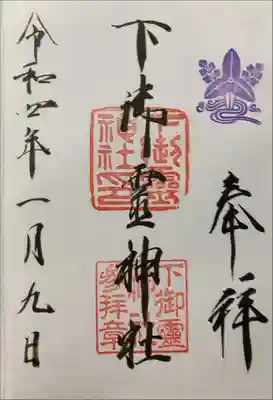 奉拝
下御霊神社
下御靈神社印
下御靈神社参拝章
令和四年一月九日